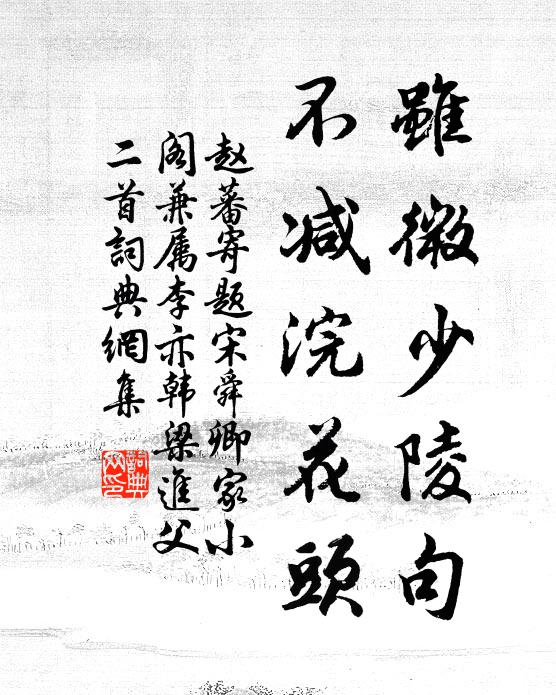 雖微少陵句
不減浣花頭
赵蕃寄题宋舜卿家小
阁兼属李亦韩梁進父
二首詞典網集